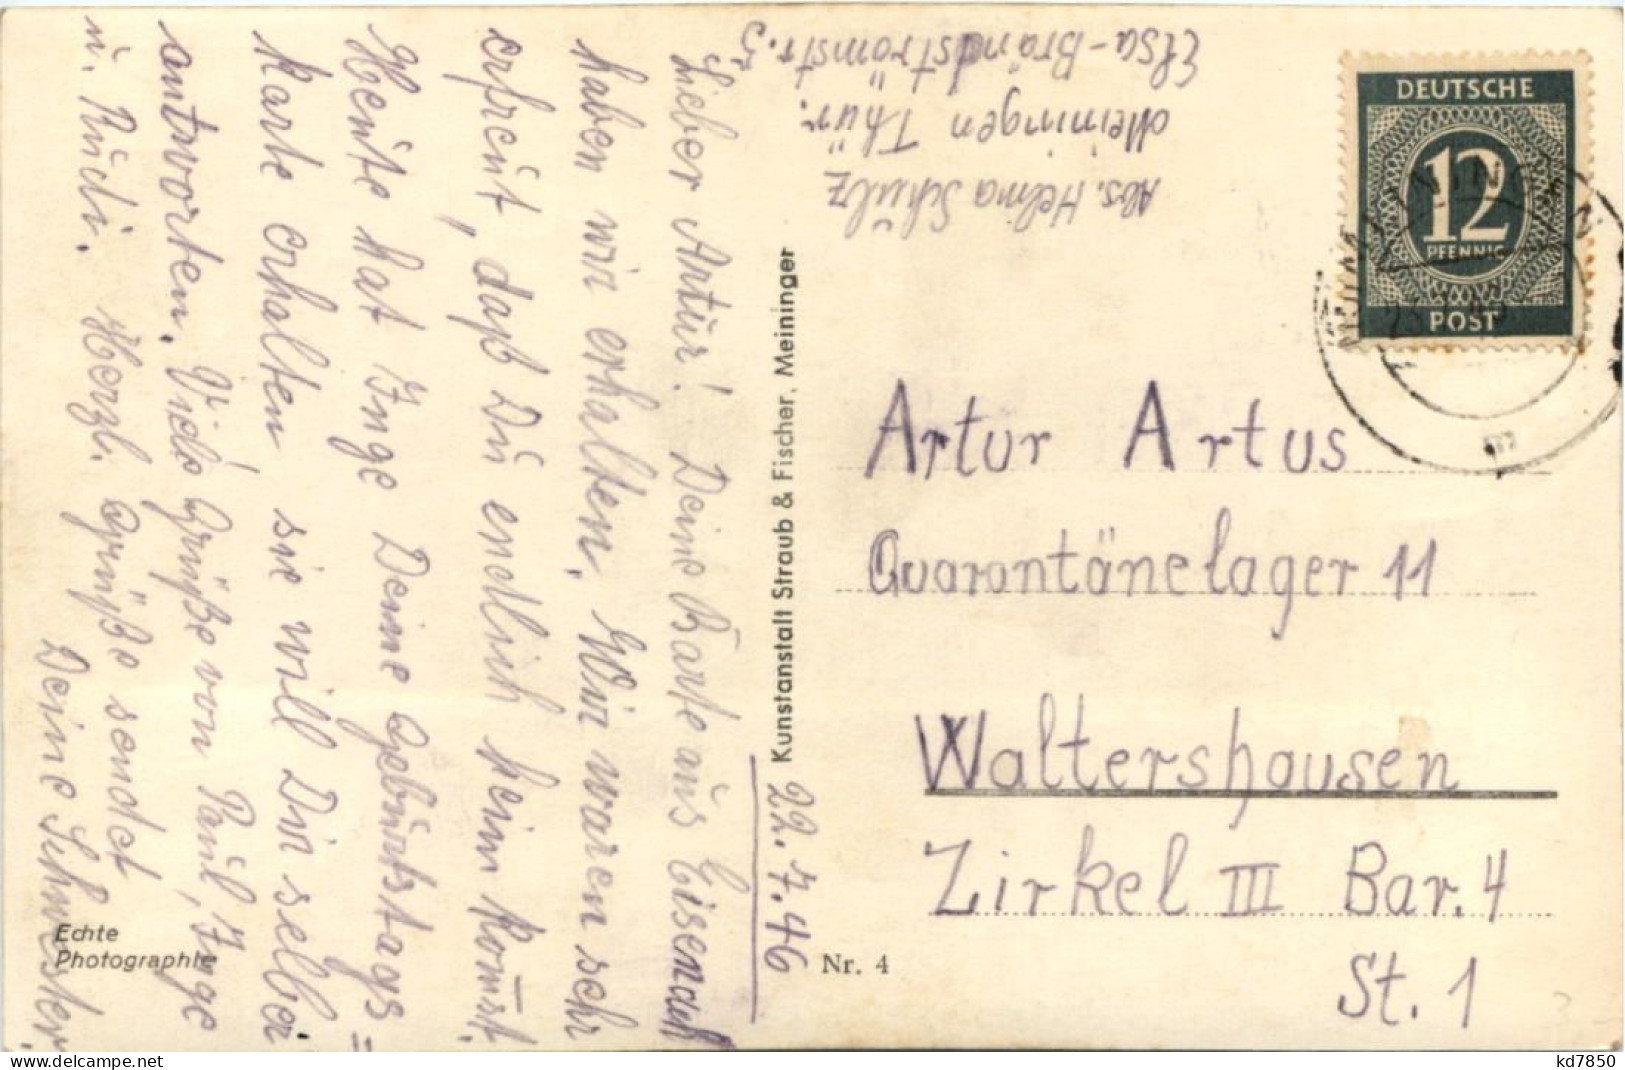 22.7.46
Lieber Artur! Deine Karte aus Eisenach
haben wir erhalten. Wir waren sehr
erfreut, daß Du endlich heim kommst.
Heute hat Inge Deine Geburtstags=
karte erhalten, sie will Dir selber
antworten. Viele Grüße von Paul, Inge
u. Rudi. Herzl. Grüße sendet
Deine Schwester.
Echte
Photographie
Kunstanstalt Straub & Fischer, Meininger
Nr. 4
Abs. Helma Schulz
Meiningen Thür.
Elsa-Brändströmstr. 5
DEUTSCHE
12
PFENNIG
POST
Artur Artus
Quarantänelager 11
Waltershausen
Zirkel III Bar. 4
St. 1
www.delcampe.net
kd7850